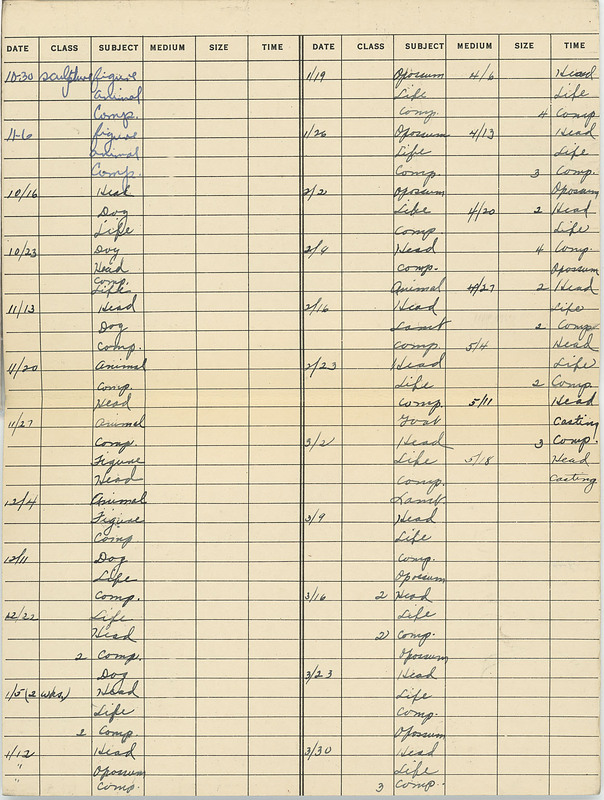 DATE CLASS SUBJECT MEDIUM SIZE TIME
10-30 sculpture figure
animal
Comp.
11-6 figure
animal
Comp.
10/16 Head
Dog
Life
10/23 Dog
Head
Comp.
Life
11/13 Head
Dog
Comp.
11/20 Animal
Comp.
Head
11/27 Animal
Comp.
Figure
Head
12/4 Animal
Figure
Comp
12/11 Dog
Life
Comp.
12/22 Life
Head
2 Comp.
Dog
1/5 (2 wks.) Head
Life
2 Comp.
1/12 Head
" Opossum
Comp.
DATE CLASS SUBJECT MEDIUM SIZE TIME
1/19 Opossum
Life
Comp.
1/26 Opossum
Life
Comp.
2/2 Opossum
Life
Comp
2/9 Head
Comp.
Animal
2/16 Head
Lamb
Comp.
2/23 Head
Life
Comp.
Goat
3/2 Head
Life
Comp.
Lamb
3/9 Head
Life
Comp.
Opossum
3/16 2 Head
Life
2 Comp.
Opossum
3/23 Head
Life
Comp.
Opossum
3/30 Head
Life
3 Comp.
4/6 Head
Life
4 Comp
4/13 Head
Life
3 Comp.
Opossum
4/20 2 Head
Life
4 Comp.
Opossum
4/27 2 Head
Life
2 Comp
5/4 Head
Life
2 Comp
5/11 Head
Casting
3 Comp.
5/18 Head
Casting